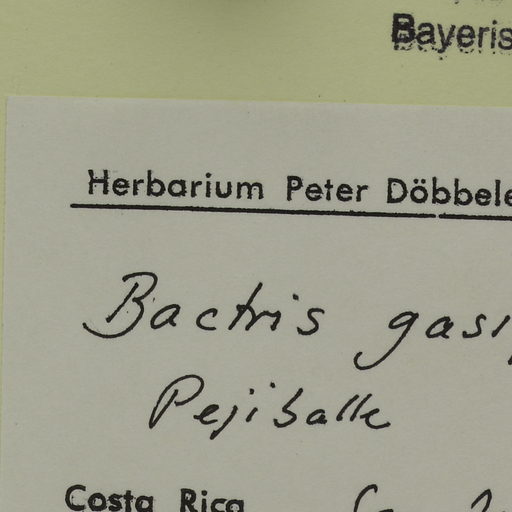 Bayeris
Herbarium Peter Döbbele
Bactris gasi
Pejiballe
Costa Rica